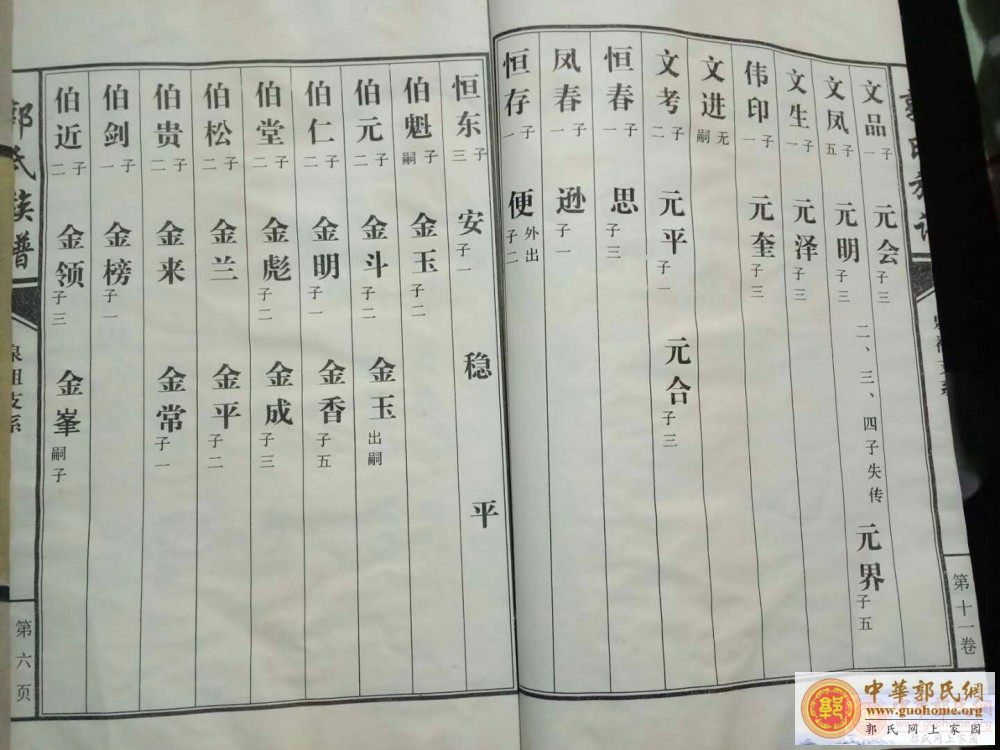 第十一卷
文品 子一 元会 子三
文凤 子五 元明 子三 二、三、四子失传 元界 子五
文生 子一 元泽 子三
伟印 子一 元奎 子三
文进 无嗣
文考 子二 元平 子一 元合 子三
恒春 子一 思 子三
凤春 子一 逊 子一
恒存 子一 便 外出 子二
恒东 子三 安 子一 稳 平
伯魁 子嗣 金玉 子二
伯元 子二 金斗 子二 金玉 出嗣
伯仁 子二 金明 子一 金香 子五
伯堂 子二 金彪 子二 金成 子三
伯松 子二 金兰 金平 子二
伯贵 子二 金来 金常 子一
伯剑 子一 金榜 子一
伯近 子二 金领 子三 金峯 嗣子
郭氏族谱
泉祖支系
第六页
中華郭氏網
www.guohome.org
郭氏网上家园